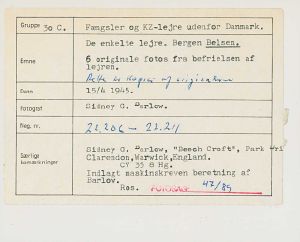 Gruppe 30 C. Fængsler og KZ-lejre udenfor Danmark.
De enkelte lejre. Bergen Belsen.
Emne 6 originale fotos fra befrielsen af
lejren.
Dette er kopier af originalerne
Dato 15/4 1945.
Fotograf Sidney G. Barlow.
Neg. nr. 22.206 - 22.211
Særlige bemærkninger Sidney G. Barlow, "Beech Croft", Park
Claresdon, Warwick, England.
CV 35 8 Hg.
Indlagt maskinskreven beretning af
Barlov.
Res. 47/89